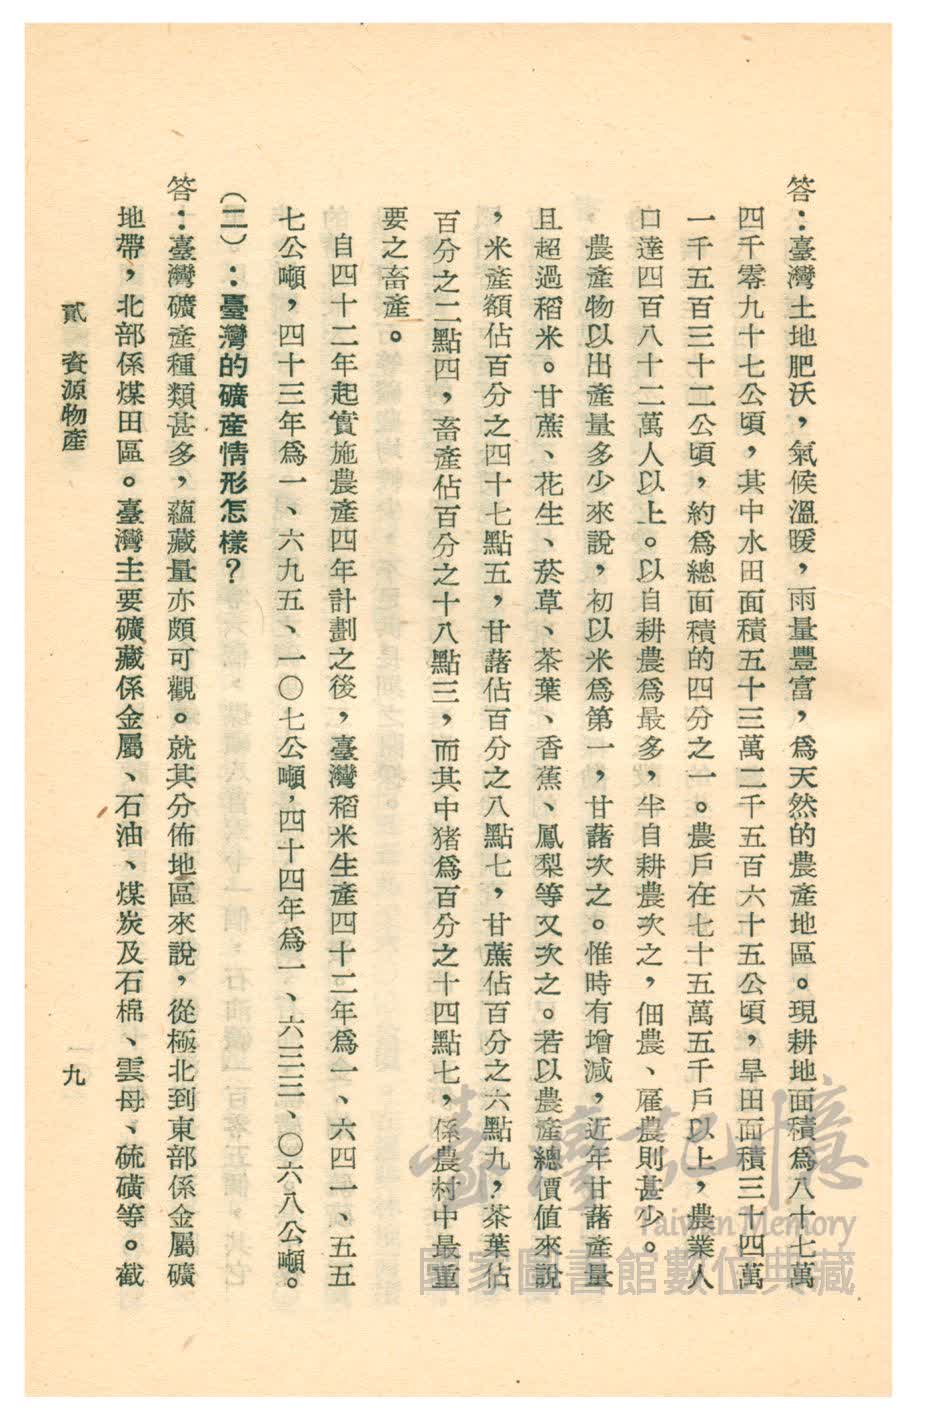 答：臺灣土地肥沃，氣候溫暖，雨量豐富，為天然的農產地區。現耕地面積為八十七萬
四千零九十七公頃，其中水田面積五十三萬二千五百六十五公頃，旱田面積三十四萬
一千五百三十二公頃，約為總面積的四分之一。農戶在七十五萬五千戶以上，農業人
口達四百八十二萬人以上。以自耕農為最多，半自耕農次之，佃農、雇農則甚少。
農產物以出產量多少來說，初以米為第一，甘藷次之。惟時有增減，近年甘藷產量
且超過稻米。甘蔗、花生、菸草、茶葉、香蕉、鳳梨等又次之。若以農產總價值來說
，米產額佔百分之四十七點五，甘藷佔百分之八點七，甘蔗佔百分之六點九，茶葉佔
百分之二點四，畜產佔百分之十八點三，而其中猪為百分之十四點七，係農村中最重
要之畜產。
自四十二年起實施農產四年計劃之後，臺灣稻米生產四十二年為一、六四一、五五
七公噸，四十三年為一、六九五、一〇七公噸，四十四年為一、六三三、〇六八公噸。
（二）：臺灣的礦產情形怎樣？
答：臺灣礦產種類甚多，蘊藏量亦頗可觀。就其分佈地區來說，從極北到東部係金屬礦
地帶，北部係煤田區。臺灣主要礦藏係金屬、石油、煤炭及石棉、雲母、硫磺等。截
貳　資源物產
一九
臺灣記憶
Taiwan Memory
國家圖書館數位典藏